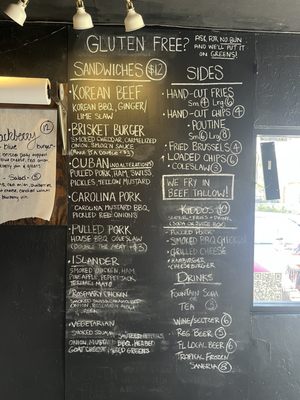 GLUTEN FREE?
ASK FOR NO BUN
AND WE'LL PUT IT
ON GREENS!
SANDWICHES $12
KOREAN BEEF
KOREAN BBQ, GINGER/
LIME SLAW
BRISKET BURGER
SMOKED CHEDDAR, CARMELIZED
ONION, SMOKIN SAUCE
CUBAN (NO ALTERATIONS)
PULLED PORK, HAM, SWISS
PICKLES, YELLOW MUSTARD
CAROLINA PORK
CAROLINA MUSTARD BBQ,
PICKLED RED ONIONS
PULLED PORK
HOUSE BBQ, COLESLAW
(DOUBLE THE MEAT +$3)
ISLANDER
SMOKED CHICKEN, HAM,
PINEAPPLE, PEPPERJACK,
TERIYAKI MAYO
ROSEMARY CHICKEN
VEGETARIAN
SMOKED SQUASH,
ONION, MUSTARD BBQ, HERBED
GOAT CHEESE, MIXED GREENS
SIDES
HAND-CUT FRIES
SM 4 LRG 6
HAND-CUT CHIPS 4
POUTINE
SM 6 LRG 8
FRIED BRUSSELS 4
LOADED CHIPS 6
COLESLAW 3
WE FRY IN
BEEF TALLOW!
KIDDOS 10
PULLED PORK
SMOKED BBQ CHICKEN
GRILLED CHEESE
HAMBURGER
CHEESEBURGER
DRINKS
FOUNTAIN SODA
TEA 3
WINE/SELTZER 6
REG BEER 5
FL LOCAL BEER 6
TROPICAL FROZEN
SANGRIA 8
12
BURGER
SALAD